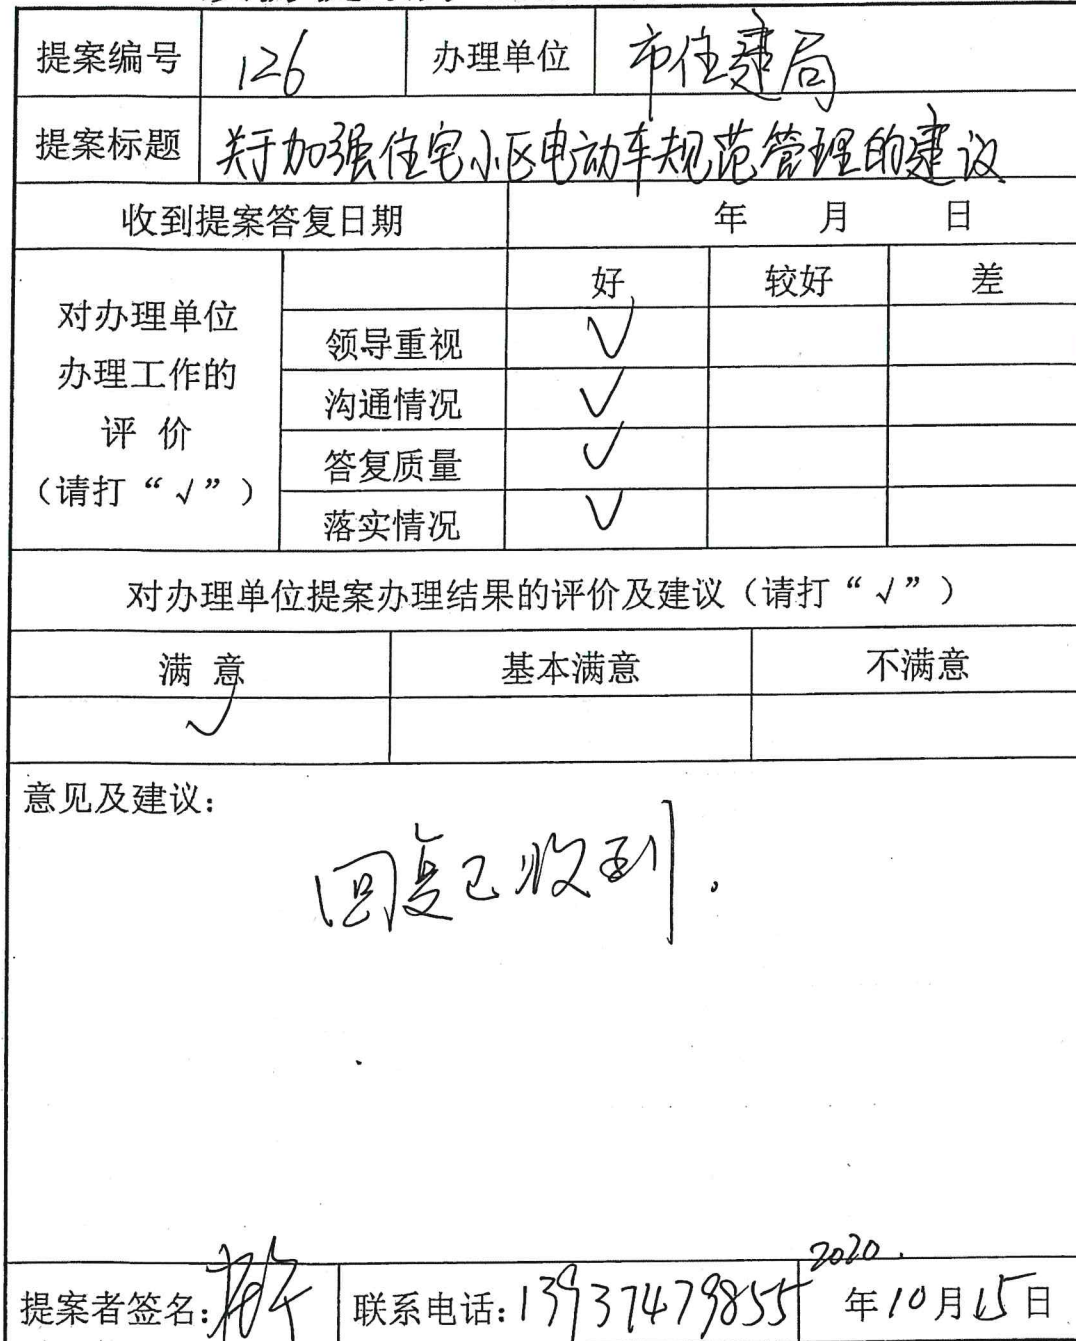 提案编号 126 办理单位 市住建局
提案标题 关于加强住宅小区电动车规范管理的建议
收到提案答复日期 年 月 日
对办理单位
办理工作的
评 价
（请打“√”）
好 较好 差
领导重视 √
沟通情况 √
答复质量 √
落实情况 √
对办理单位提案办理结果的评价及建议（请打“√”）
满 意 基本满意 不满意
√
意见及建议：
回复已收到.
2020.
提案者签名： 联系电话：13937479855 年10月15日